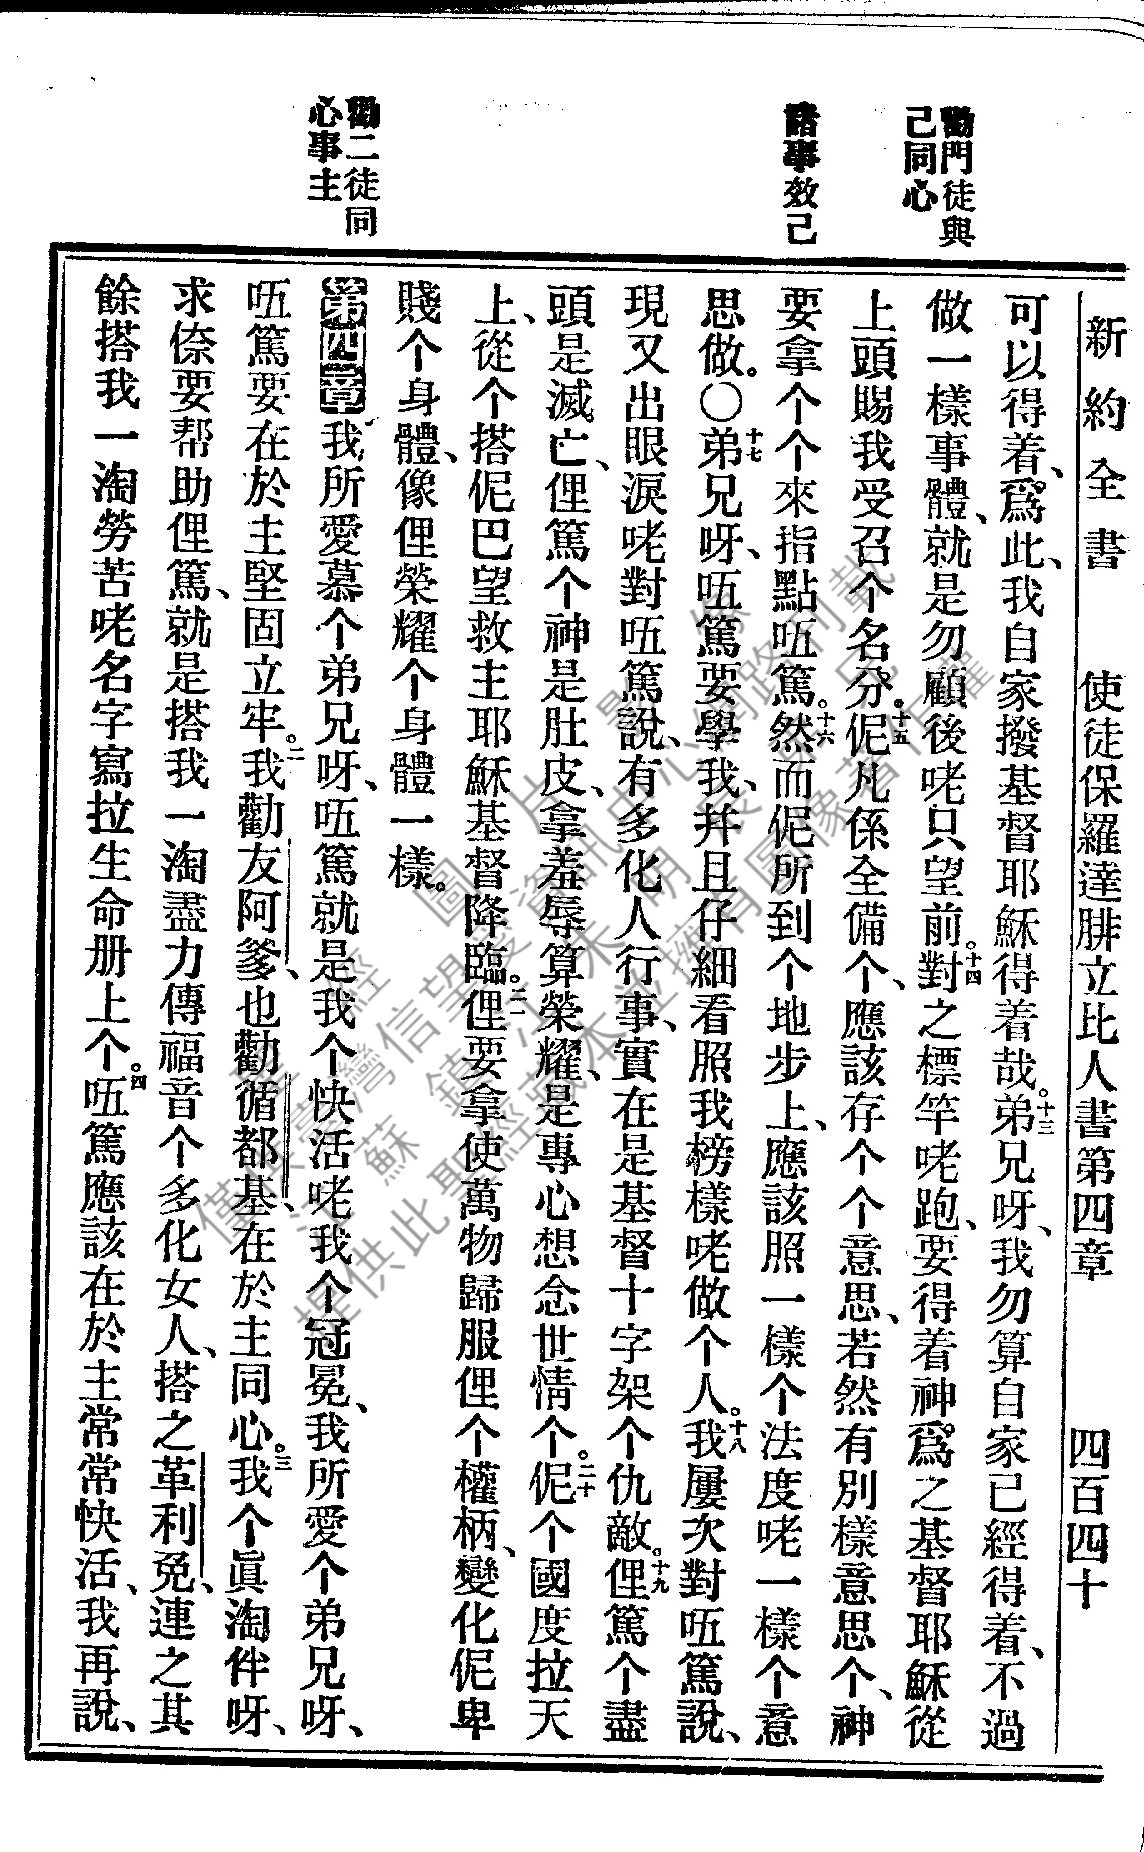 新約全書　使徒保羅達腓立比人書第四章　四百四十
勸門徒與
己同心
諸事效己
勸二徒同
心事主
可以得着、爲此、我自家撥基督耶穌得着哉。十三弟兄呀、我勿算自家已經得着、不過
做一樣事體、就是勿顧後咾只望前。十四對之標竿咾跑、要得着神爲之基督耶穌從
上頭賜我受召个名分。十五伲凡係全備个、應該存个个意思、若然有別樣意思个、神
要拿个个來指點㕶篤。十六然而伲所到个地步上、應該照一樣个法度咾一樣个意
思做。〇十七弟兄呀、㕶篤要學我、幷且仔細看照我榜樣咾做个人。十八我屢次對㕶篤說、
現又出眼淚咾對㕶篤說、有多化人行事、實在是基督十字架个仇敵。十九俚篤个盡
頭是滅亡、俚篤个神是肚皮、拿羞辱算榮耀、是專心想念世情个。二十伲个國度拉天
上、從个搭伲巴望救主耶穌基督降臨。二一俚要拿使萬物歸服俚个權柄、變化伲卑
賤个身體、像俚榮耀个身體一樣。
第四章我所愛慕个弟兄呀、㕶篤就是我个快活咾我个冠冕、我所愛个弟兄呀、
㕶篤要在於主堅固立牢。二我勸友阿爹、也勸循都基、在於主同心。三我个眞淘伴呀、
求倷要帮助俚篤、就是搭我一淘盡力傳福音个多化女人、搭之革利免、連之其
餘搭我一淘勞苦咾名字寫拉生命册上个。四㕶篤應該在於主常常快活、我再說、